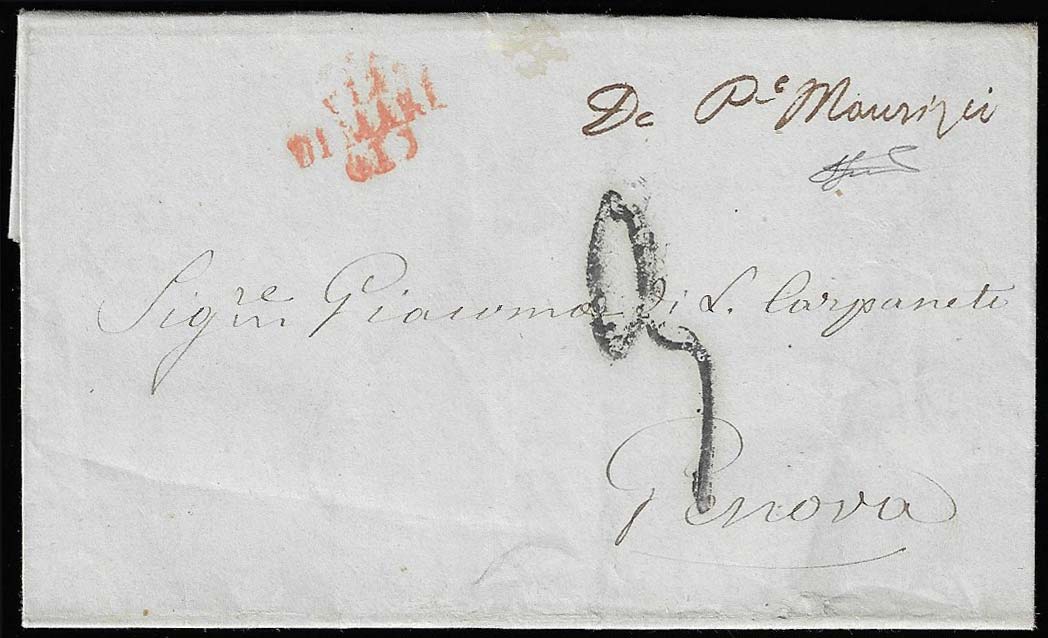 VIA
DI MARE
De Pᵗᵒ Maurizi
Sigʳᵉ Giacomo di L. Carpaneto
Genova